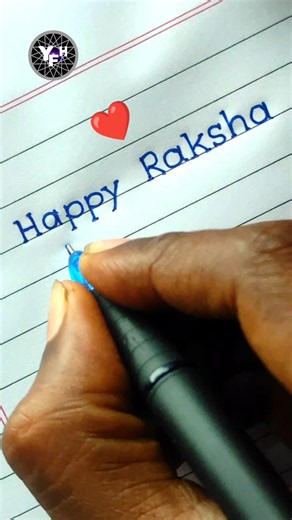 YFH
Happy Raksha